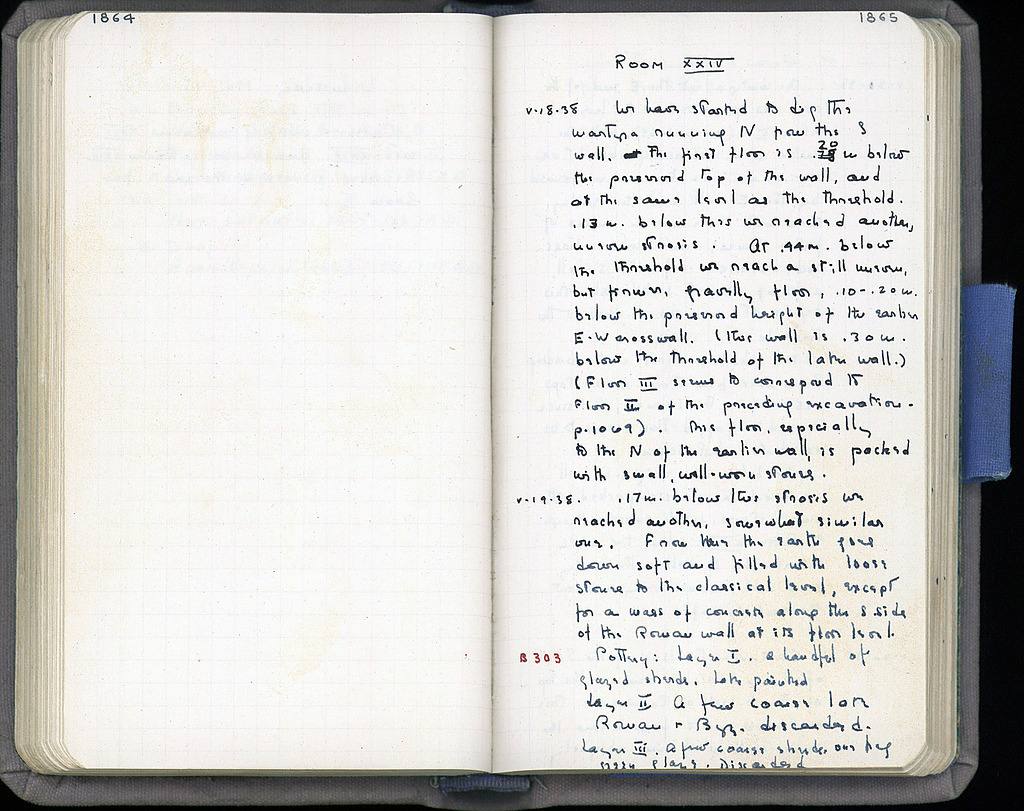 1864
1865
Room XXIV
V-18-38 We have started to dig the
martyra running N from the S
wall. The first floor is .20 m below
the preserved top of the wall, and
at the same level as the threshold.
.13 m. below this we reached another,
uneven strosis. At .44 m. below
the threshold we reach a still uneven,
but firmer, gravelly floor, .10-.20 m.
below the preserved height of the earlier
E-W crosswall. (This wall is .30 m.
below the threshold of the later wall.)
(Floor III seems to correspond to
Floor II of the preceding excavation -
p. 1069). This floor, especially
to the N of the earlier wall, is packed
with small, well-worn stones.
V-19-38. .17 m. below this strosis we
reached another, somewhat similar
one. From here the earth goes
down soft and filled with loose
stones to the classical level, except
for a mass of concrete along the S side
of the Roman wall at its floor level.
B 303 Pottery: Layer I. a handful of
glazed sherds. Late painted
Layer II A few coarse late
Roman + Byz. discarded.
Layer III. A few coarse sherds, one
glaze. Discarded